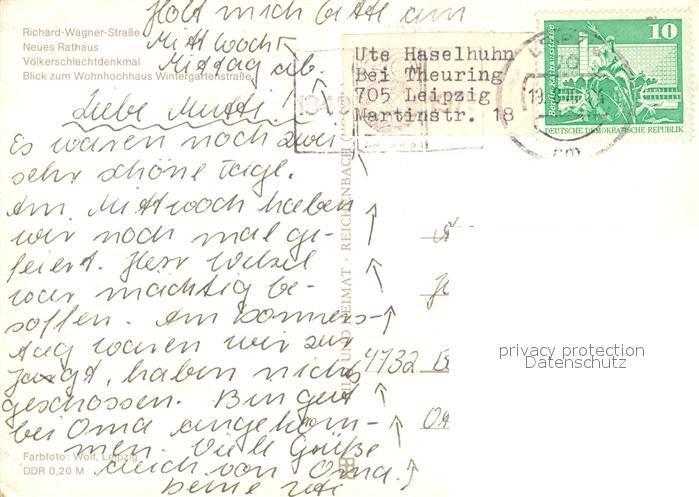 Holt mich bitte am
Mittwoch
Mittag ab.
Richard-Wagner-Straße
Neues Rathaus
Völkerschlachtdenkmal
Blick zum Wohnhochhaus Wintergartenstraße
Ute Haselhuhn
Bei Theuring
705 Leipzig
Martinstr. 18
10
Berlin, Rathausstraße
DEUTSCHE DEMOKRATISCHE REPUBLIK
Liebe Mutti!
Es waren noch zwei
sehr schöne Tage.
Am Mittwoch haben
wir noch mal ge-
feiert. Herr Witzel
war mächtig be-
soffen. Am Donners-
tag waren wir zur
Jagd, haben nichts
geschossen. Bin gut
bei Oma angekom-
men. Viele Grüße
auch von Oma.
Deine Ute
BILD UND HEIMAT · REICHENBACH
4732
Farbfoto: Wolf, Leipzig
DDR 0,20 M
privacy protection
Datenschutz